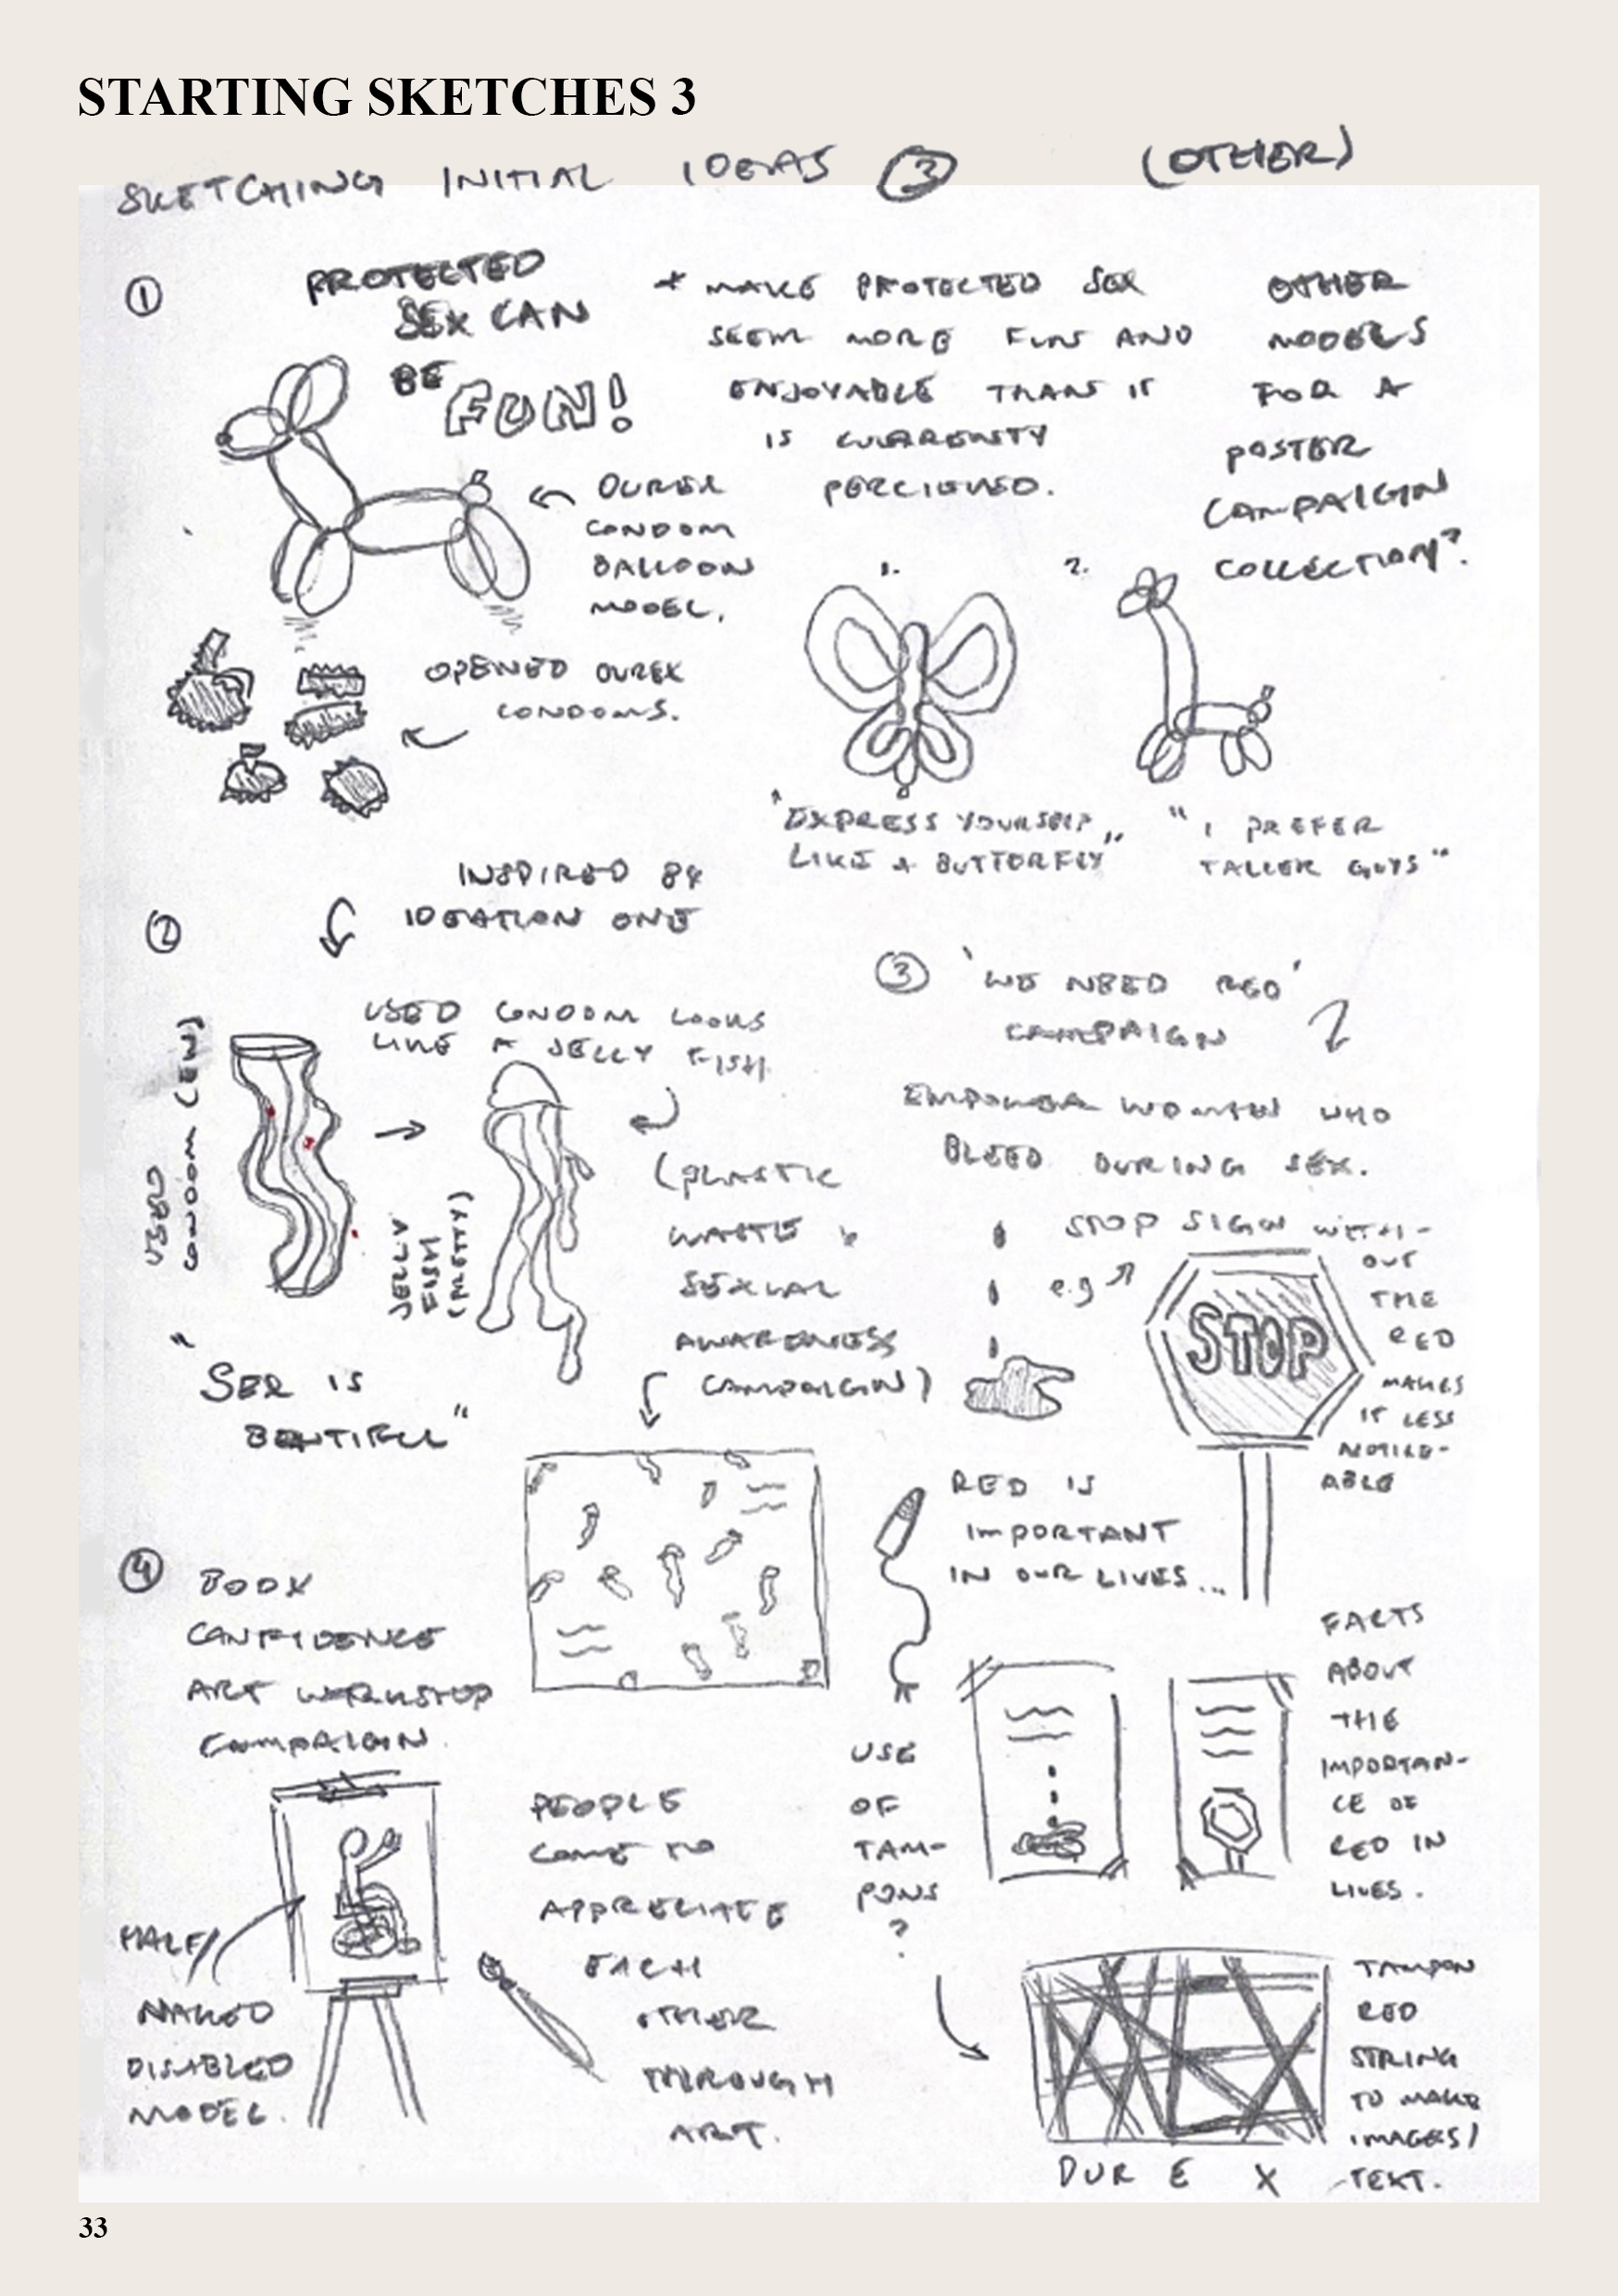 STARTING SKETCHES 3
SKETCHING INITIAL IDEAS 3 (OTHER)
1
PROTECTED
SEX CAN
BE FUN!
* MAKE PROTECTED SEX
SEEM MORE FUN AND
ENJOYABLE THAN IT
IS CURRENTY
PERCIEVED.
OTHER
MODELS
FOR A
POSTER
CAMPAIGN
COLLECTION?
DUREX
CONDOM
BALLOON
MODEL.
OPENED DUREX
CONDOMS.
1.
2.
"EXPRESS YOURSELF
LIKE A BUTTERFLY"
"I PREFER
TALLER GUYS"
2
INSPIRED BY
IDEATION ONE
USED CONDOM LOOKS
LIKE A JELLY FISH
USED
CONDOM (EW)
JELLY
FISH
(PRETTY)
(PLASTIC
WASTE &
SEXUAL
AWARENESS
CAMPAIGN)
"SEX IS
BEATIFUL"
3 'WE NEED RED'
CAMPAIGN
EMPOWER WOMEN WHO
BLEED DURING SEX.
e.g
STOP SIGN WITH-
OUT
THE
RED
MAKES
IT LESS
NOTICE-
ABLE
STOP
RED IS
IMPORTANT
IN OUR LIVES...
FACTS
ABOUT
THE
IMPORTAN-
CE OF
RED IN
LIVES.
USE
OF
TAM-
PONS
?
TAMPON
RED
STRING
TO MAKE
IMAGES/
TEXT.
DUREX
4 BODY
CONFIDENCE
ART WORKSHOP
CAMPAIGN.
PEOPLE
COME TO
APPRECIATE
EACH
OTHER
THROUGH
ART.
HALF/
NAKED
DISABLED
MODEL.
33